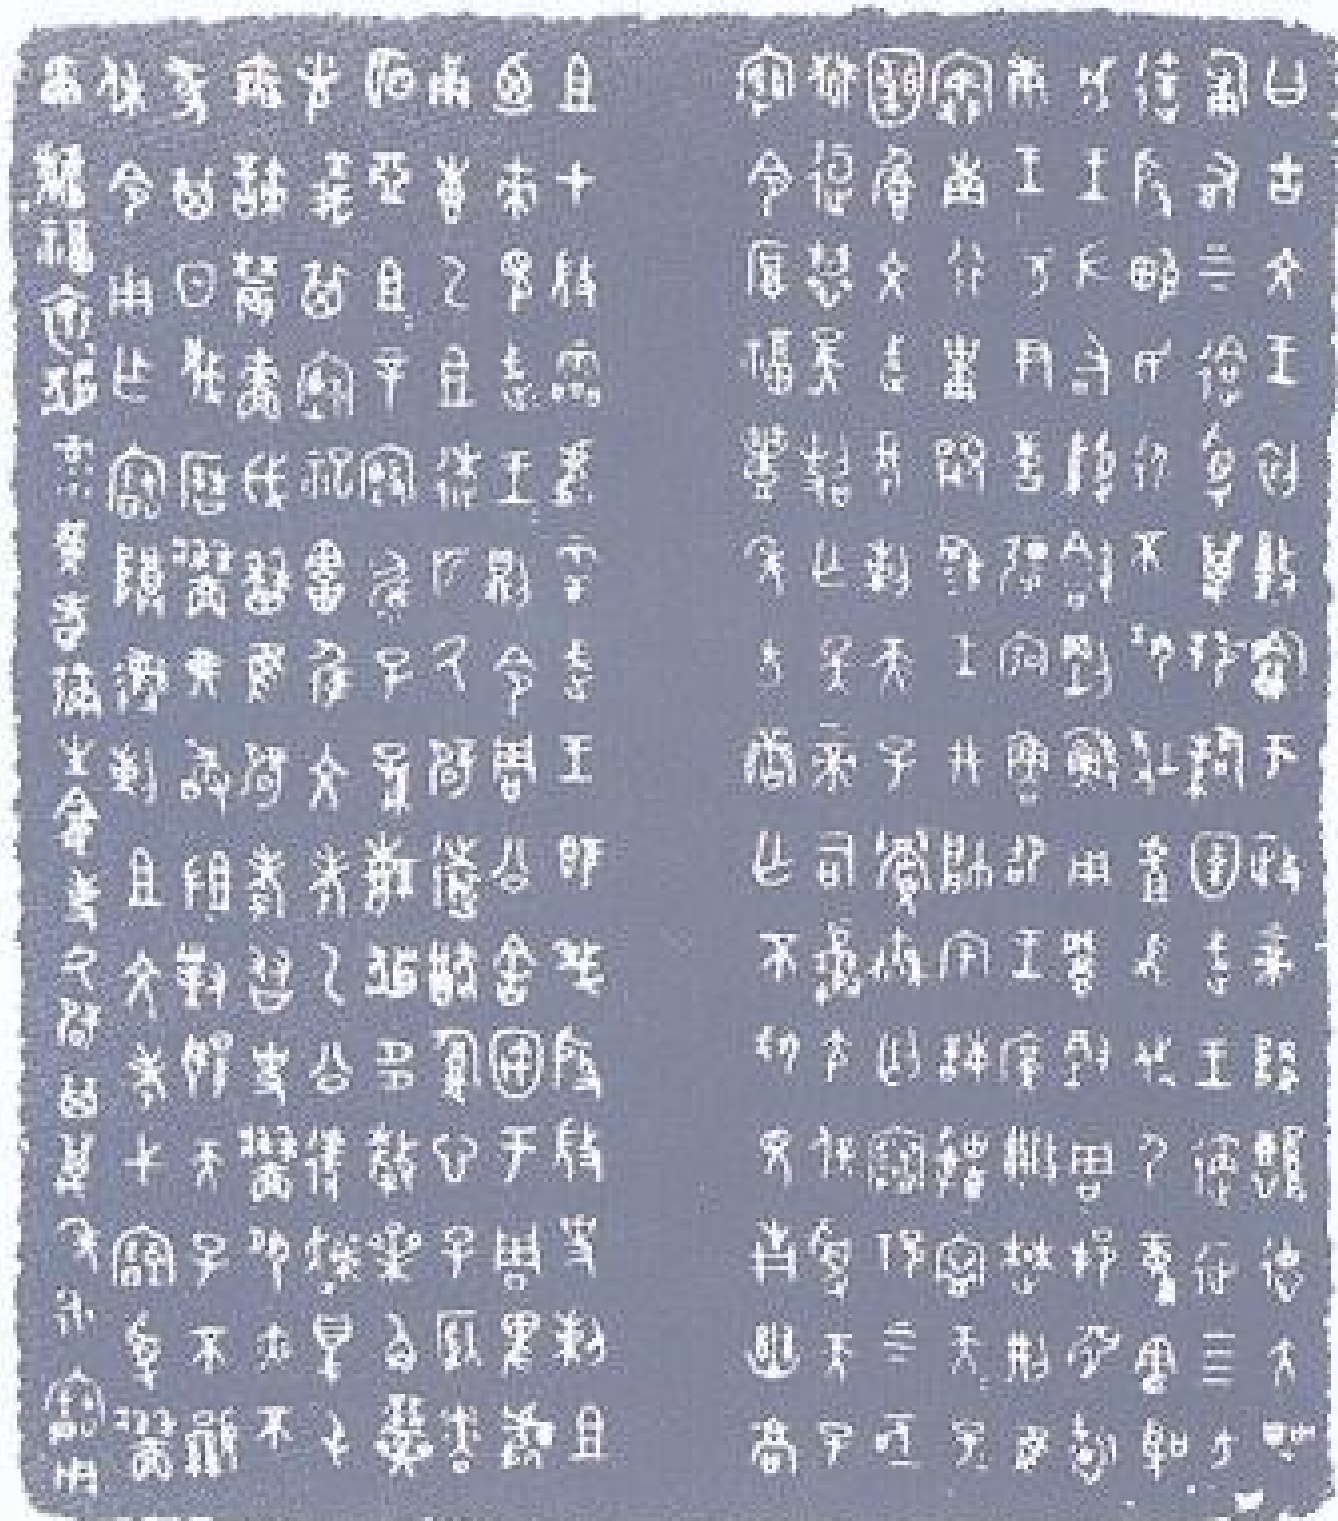 曰古文王初盭龢于政上帝降懿德大甹
匍有上下迨受萬邦訊圉武王遹征四方
達殷畯民永不巩狄虘髟伐尸童憲聖
成王左右剛鯀用肇徹周邦淵哲
康王兮尹啻彊宖魯卲王廣楚荆隹
寏南行祗覭穆王井帥宇誨申寧天子
文武長剌天子無匄祁上下亟
獄慕昊亡斁上帝司夒尢保受天子
綰令厚福豐年方蠻亡不見青幽高
且才微靈處雩武王既殷微史剌且
迺來見武王則令周公舍宇于周卑處
甬惠乙且逨匹氒辟遠猷腹心子粦
明亞且辛毓子孫繁多孷櫅角
光義其禋祀屖文考乙公遽得屯
無諫農嗇戉隹辟孝友史牆夙夜不
墜其日蔑曆牆弗敢沮對揚天子不顯
休令用乍寶尊彝剌且文考弋受牆
爾福懷录黃耇彌生龕事氒辟其萬年永寶用